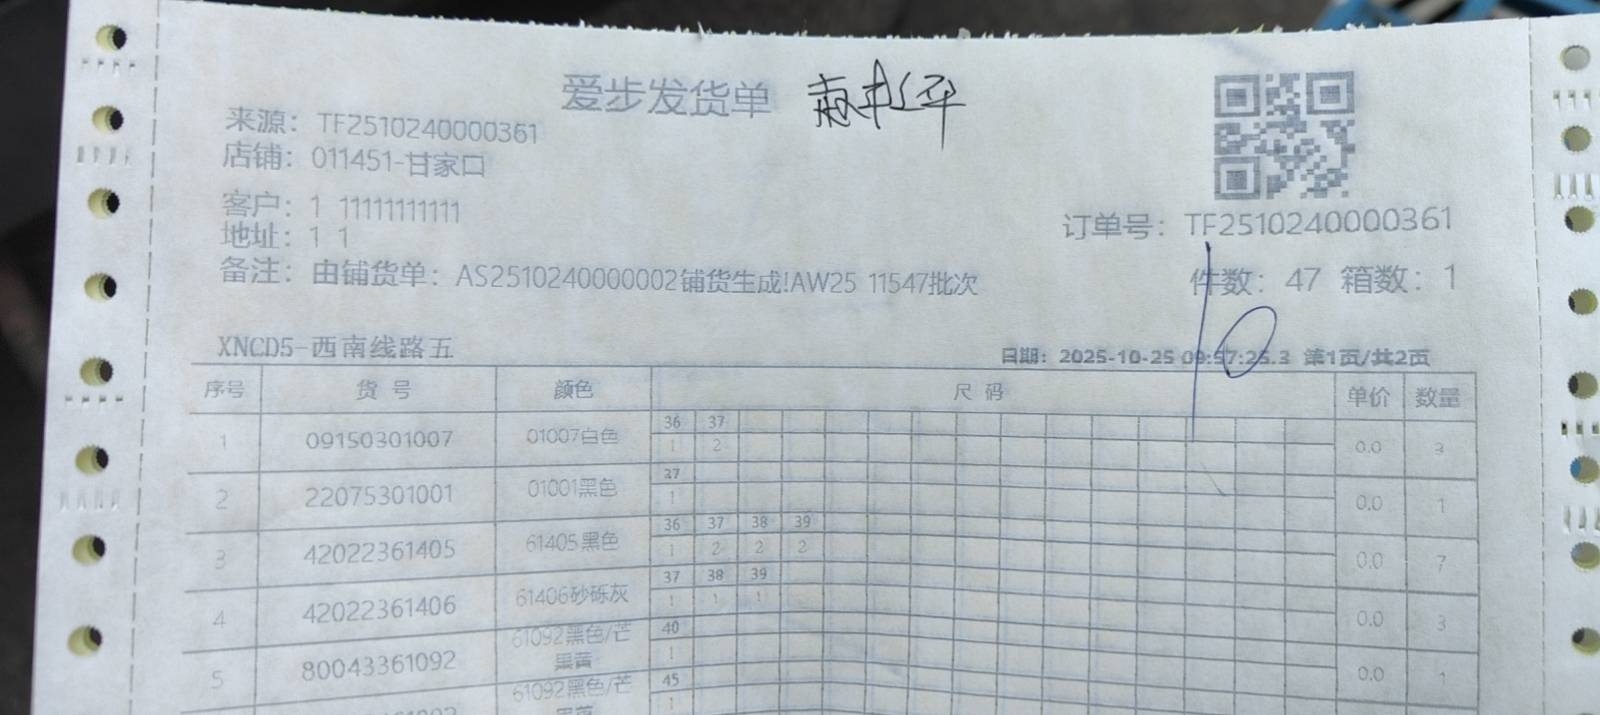 爱步发货单
来源: TF2510240000361
店铺: 011451-甘家口
客户: 1 11111111111
地址: 1 1
订单号: TF2510240000361
备注: 由铺货单: AS2510240000002铺货生成!AW25 11547批次
件数: 47 箱数: 1
10
XNCD5-西南线路五
日期: 2025-10-25 09:57:25.3 第1页/共2页
序号 货号 颜色 尺码 单价 数量
36 37
1 09150301007 01007白色 1 2 0.0 3
37
2 22075301001 01001黑色 1 0.0 1
36 37 38 39
3 42022361405 61405黑色 1 2 2 2 0.0 7
37 38 39
4 42022361406 61406砂砾灰 1 1 1 0.0 3
40
5 80043361092 61092黑色/芒果黄 1 0.0 1
45
61092黑色/芒 1